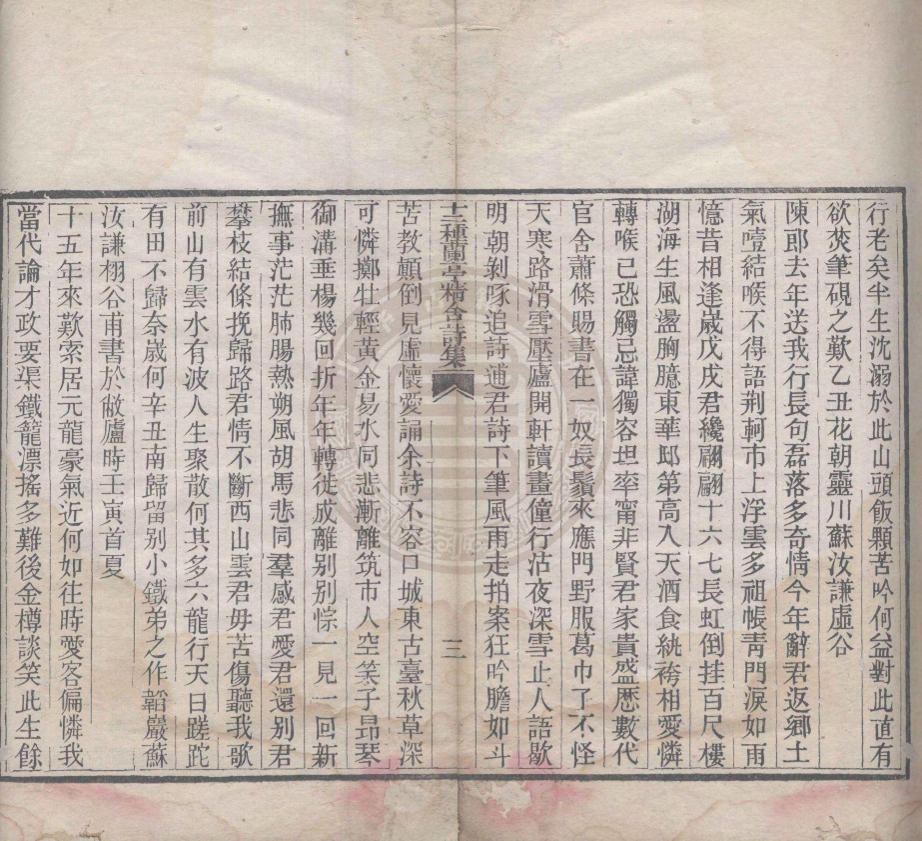 行老矣半生沈溺於此山頭飯顆苦吟何益對此直有
欲焚筆硯之歎乙丑花朝靈川蘇汝謙虛谷
陳郎去年送我行長句磊落多奇情今年辭君返鄉土
氣噎結喉不得語荆軻市上浮雲多祖帳靑門淚如雨
憶昔相逢歲戊戌君纔翩翩十六七長虹倒挂百尺樓
湖海生風盪胸臆東華邸第高入天酒食紈袴相愛憐
轉喉已恐觸忌諱獨容坦率甯非賢君家貴盛歷數代
官舍蕭條賜書在一奴長鬚來應門野服葛巾了不怪
天寒路滑雪壓廬開軒讀畫僮行沽夜深雪止人語歇
明朝剝啄追詩逋君詩下筆風雨走拍案狂吟膽如斗
十二種蘭亭精舍詩集 三
苦教顛倒見虛懷愛誦余詩不容口城東古臺秋草深
可憐擲牡輕黃金易水同悲漸離筑市人空笑子昂琴
御溝垂楊幾回折年年轉徙成離别别悰一見一回新
撫事茫茫肺腸熱朔風胡馬悲同羣感君愛君還别君
攀枝結條挽歸路君情不斷西山雲君毋苦傷聽我歌
前山有雲水有波人生聚散何其多六龍行天日蹉跎
有田不歸奈歲何辛丑南歸留别小鐵弟之作韜巖蘇
汝謙栩谷甫書於敝廬時壬寅首夏
十五年來歎索居元龍豪氣近何如往時愛客偏憐我
當代論才政要渠鐵籠漂搖多難後金樽談笑此生餘